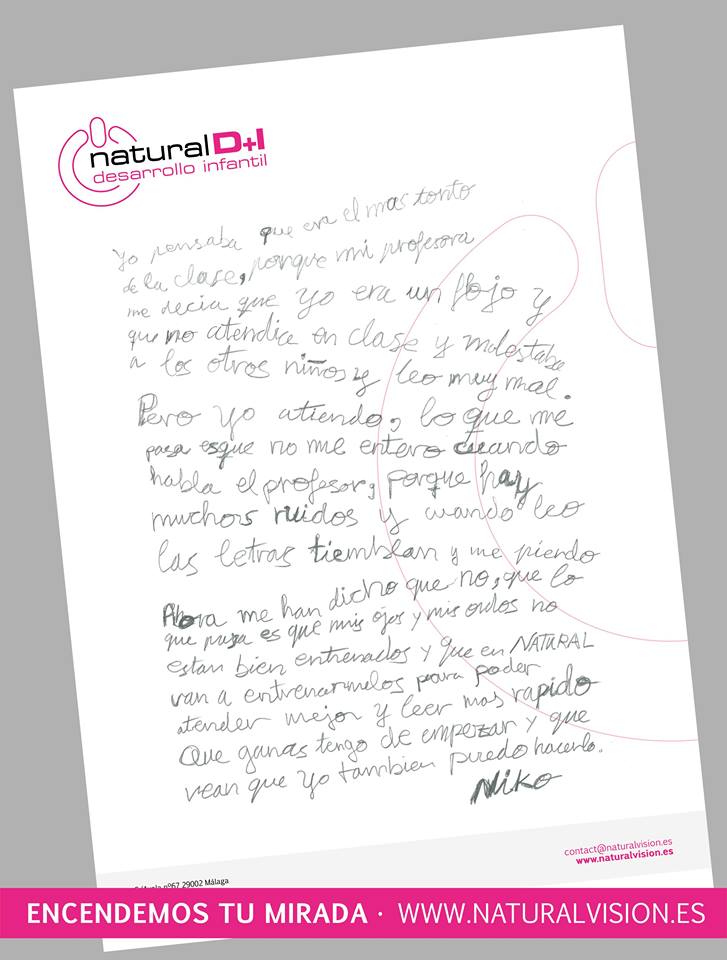 natural D+I
desarrollo infantil
Yo pensaba que era el mas tonto
de la clase, porque mi profesora
me decia que yo era un flojo y
que no atendia en clase y molestaba
a los otros niños y leo muy mal.
Pero yo atiendo, lo que me
pasa esque no me entero cuando
habla el profesor, porque hay
muchors ruidos y cuando leo
las letras tiemblan y me pierdo
Ahora me han dicho que no, que lo
que pasa es que mis ojos y mis oidos no
estan bien entrenados y que en NATURAL
van a entrenarmelos para poder
atender mejor y leer mas rapido
Que ganas tengo de empezar y que
vean que yo tambien puedo hacerlo.
Niko
contact@naturalvision.es
www.naturalvision.es
nº67 29002 Málaga
ENCENDEMOS TU MIRADA · WWW.NATURALVISION.ES